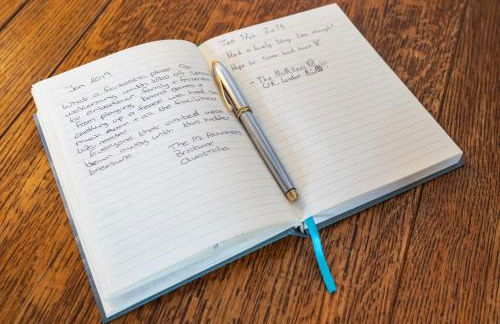 Jan 2019
What a fantastic place. So
welcoming with lots of space
to entertain family & friends
from playing board games &
cooking up a feast we had so
much room & all the facilities
we needed.
Everyone that visited were
blown away with this hidden
treasure.
The Mc
Brisbane
Australia
Jan 2019
Had a lovely stay like always!
Hope to come back soon
- The McMillans
UK, London